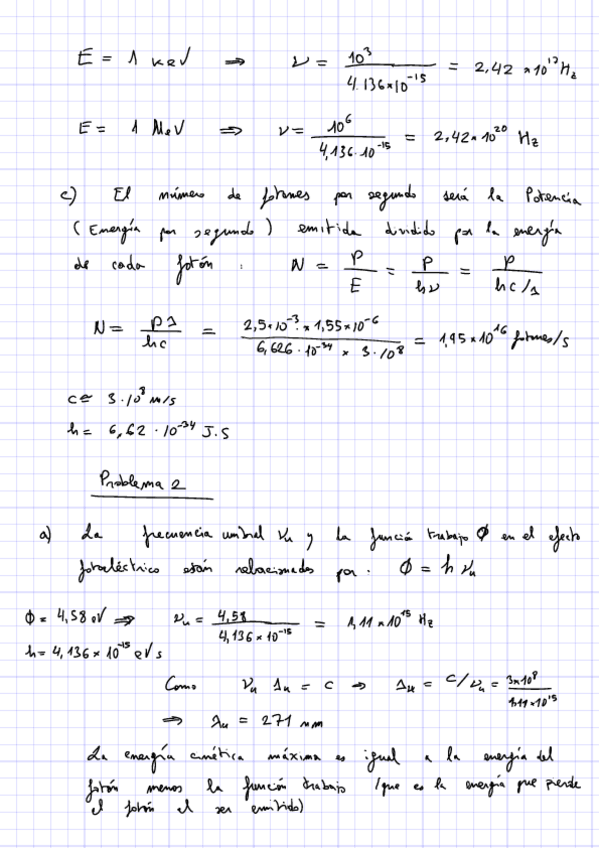 E = 1 keV ⇒ ν = 10³ / 4.136×10⁻¹⁵ = 2,42 × 10¹⁷ Hz
E = 1 MeV ⇒ ν = 10⁶ / 4,136·10⁻¹⁵ = 2,42×10²⁰ Hz
c) El número de fotones por segundo será la Potencia
(Energía por segundo) emitida dividido por la energía
de cada fotón : N = P/E = P/hν = P/hc/λ
N = Pλ/hc = 2,5×10⁻³ × 1,55×10⁻⁶ / 6,626·10⁻³⁴ × 3·10⁸ = 1,95×10¹⁶ fotones/s
c = 3·10⁸ m/s
h = 6,62·10⁻³⁴ J.S
Problema 2
a) La frecuencia umbral νu y la funció trabajo Φ en el efecto
fotoeléctrico están relacionados por. Φ = h νu
Φ = 4,58 eV ⇒ νu = 4,58 / 4,136×10⁻¹⁵ = 1,11×10¹⁵ Hz
h = 4,136×10⁻¹⁵ eV s
Como νu λu = c ⇒ λu = c/νu = 3×10⁸ / 1.11×10¹⁵
⇒ λu = 271 nm
La energía cinética máxima es igual a la energía del
fotón menos la función trabajo (que es la energía que pierde
el fotón al ser emitido)